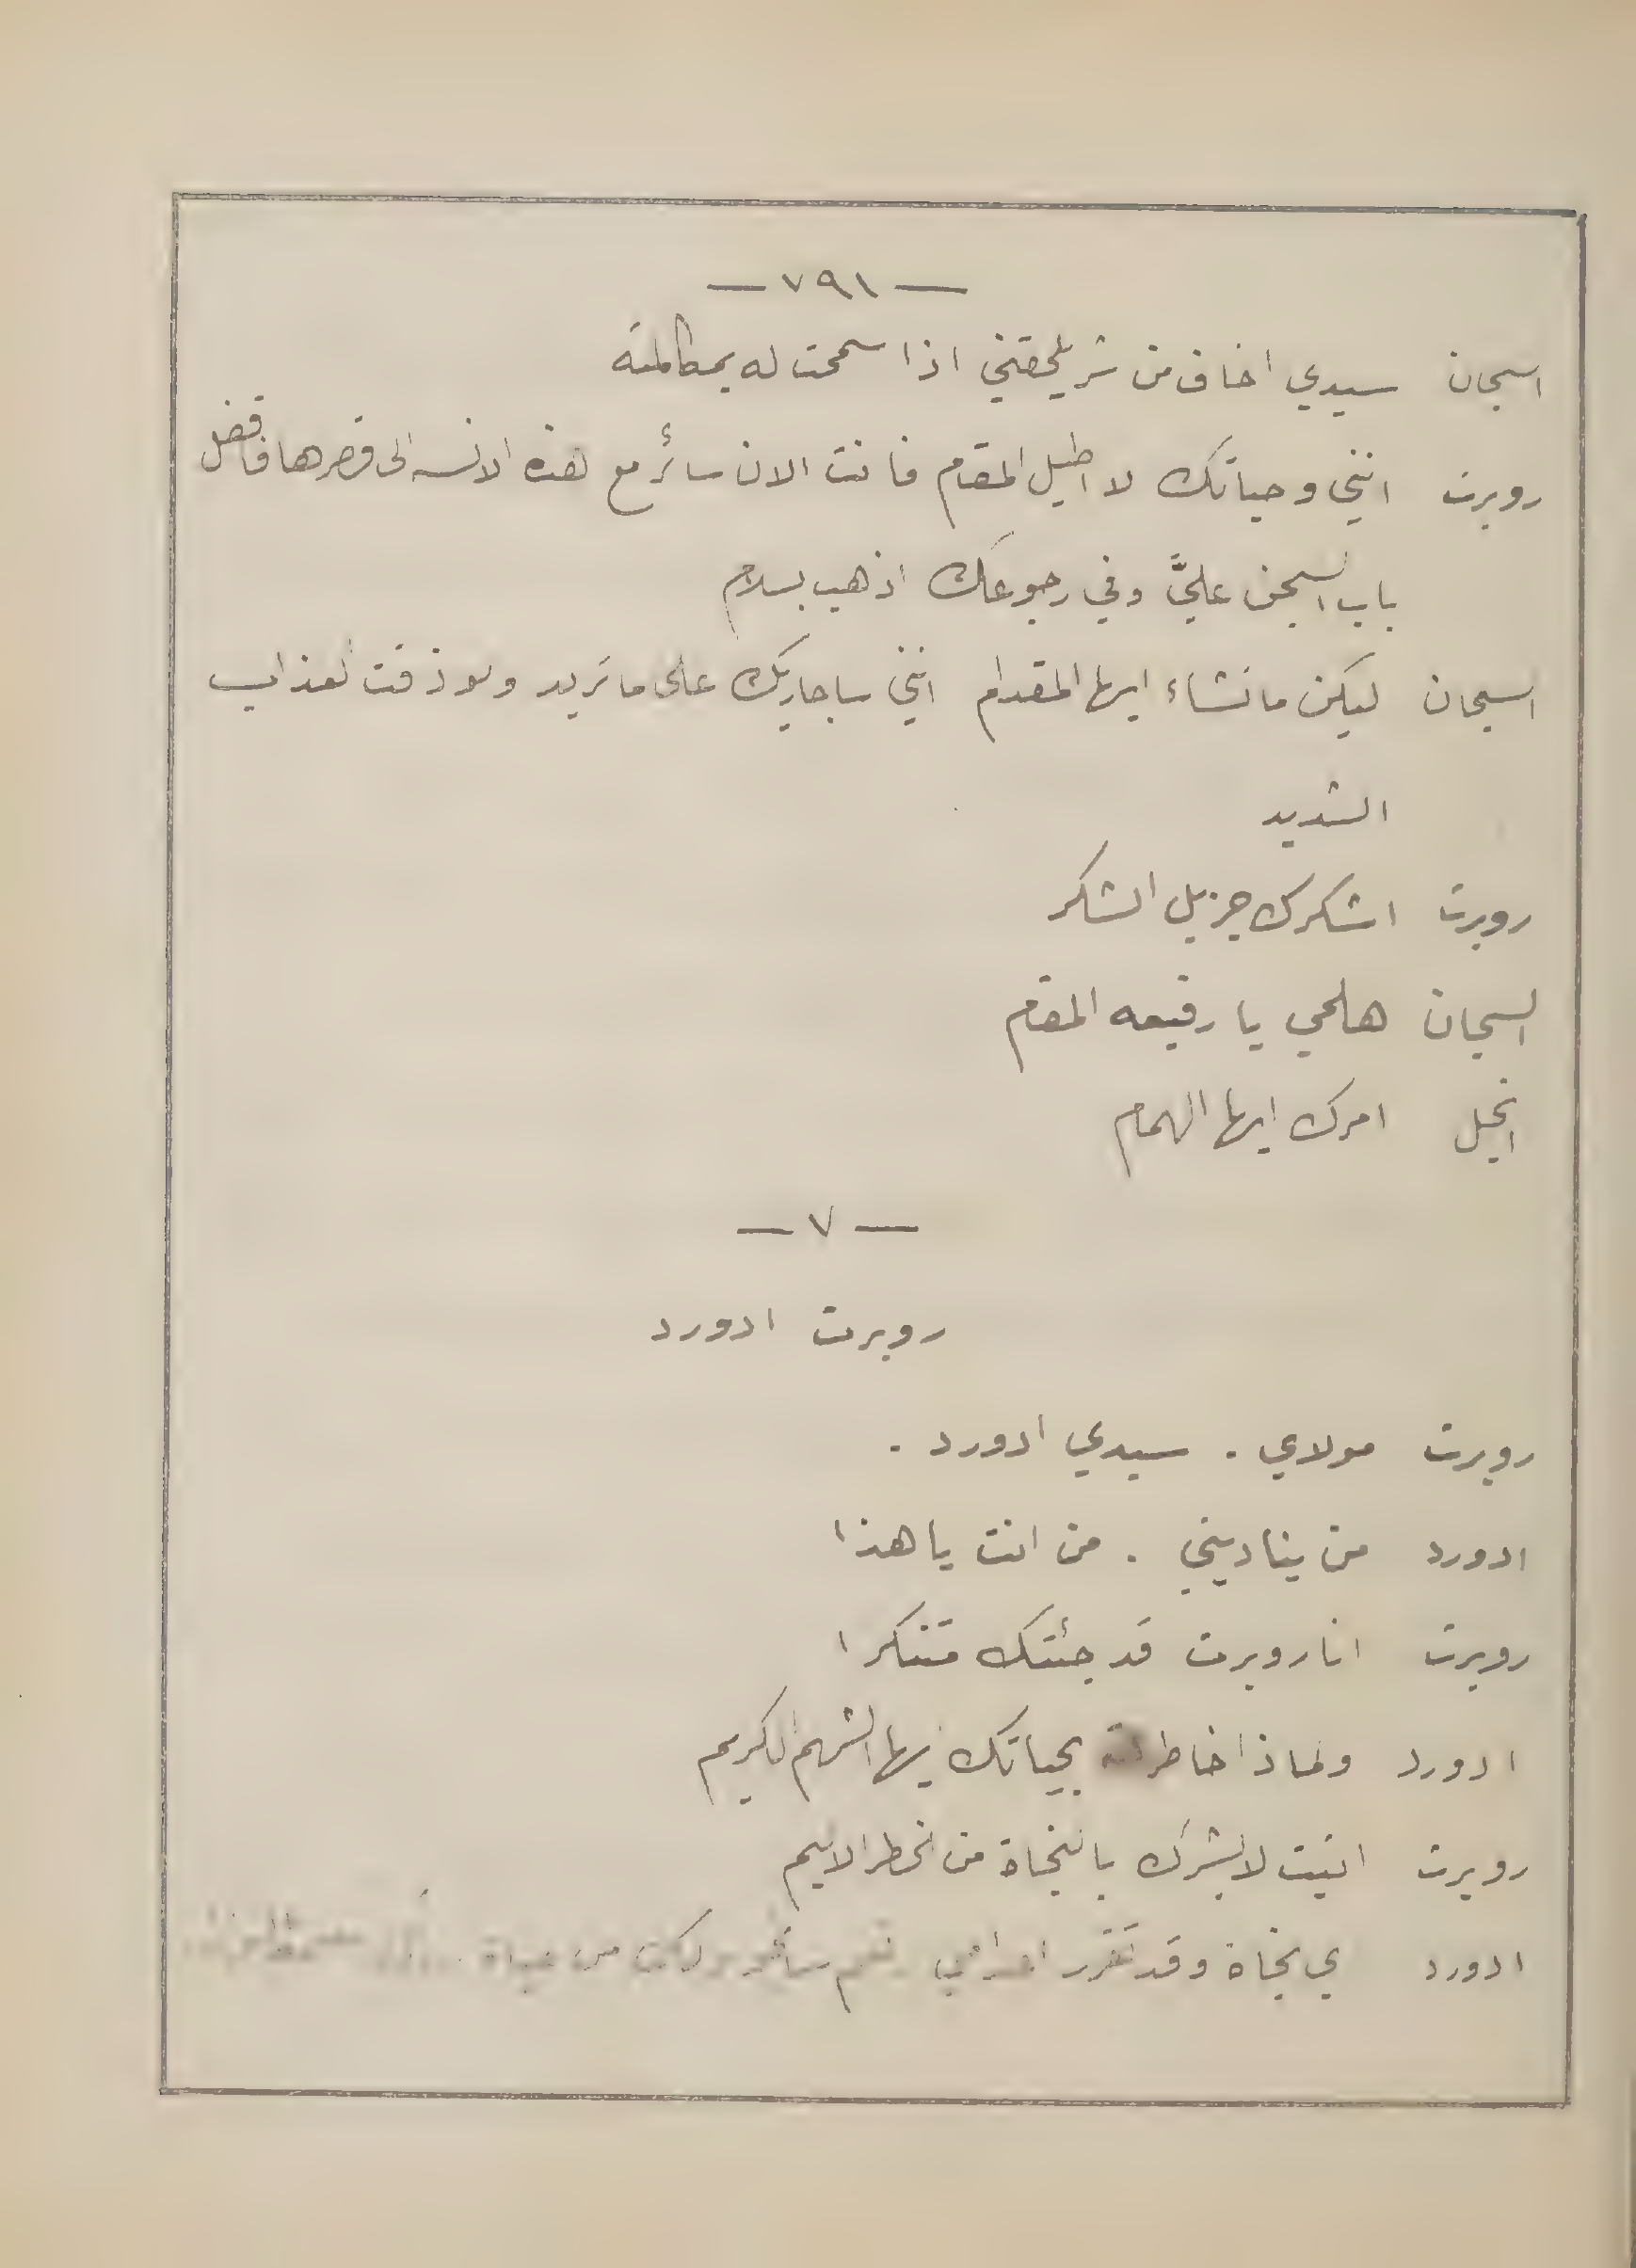 — ٧٩١ —
السجان سيدي اخاف من شر يلحقني اذا سمحت له بمكالمته
روبرت انني وحياتك لا اطيل المقام فانت الان سائر مع هذه الانسه الى قصرها فاقفل
باب السجن عليَّ وفي رجوعك اذهب بسلام
السجان ليكن ما تشاء ايها المقدام انني ساجاريك على ما تريد ولو ذقت العذاب
الشديد
روبرت اشكرك جزيل الشكر
السجان هلمي يا رفيعه المقام
انجيل امرك ايها الهمام
— ٧ —
روبرت ادورد
روبرت مولاي . سيدي ادورد .
ادورد من يناديني . من انت يا هذا
روبرت انا روبرت قد جئتك متنكرا
ادورد ولماذا خاطرت بحياتك ايها الشهم الكريم
روبرت اتيت لابشرك بالنجاة من الخطر الاليم
ادورد اي نجاة وقد تقرر اعدامي نعم سأنجو ولكن من حياة